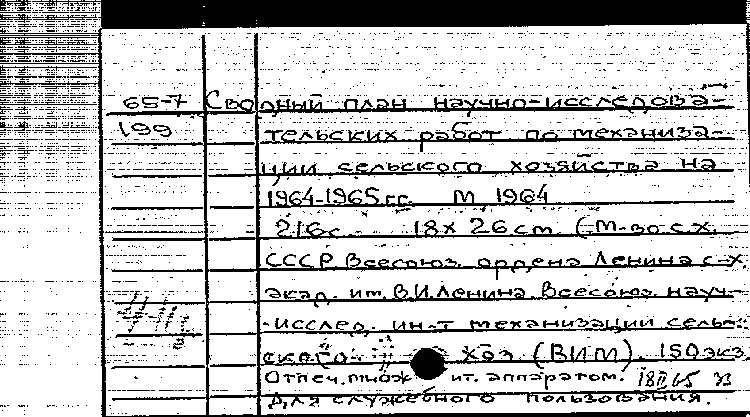 65-7 Сводный план научно-исследова-
199 тельских работ по механиза-
ции сельского хозяйства на
1964-1965 гг. М, 1964
216с. 18х26см (М-во с.х.
СССР. Всесоюз. ордена Ленина с-х.
акад. им. В.И.Ленина. Всесоюз. науч-
-исслед. ин-т механизации сель-
ского хоз (ВИМ). 150 экз
Отпеч. множ ит. аппаратом.
Для служебного пользования.